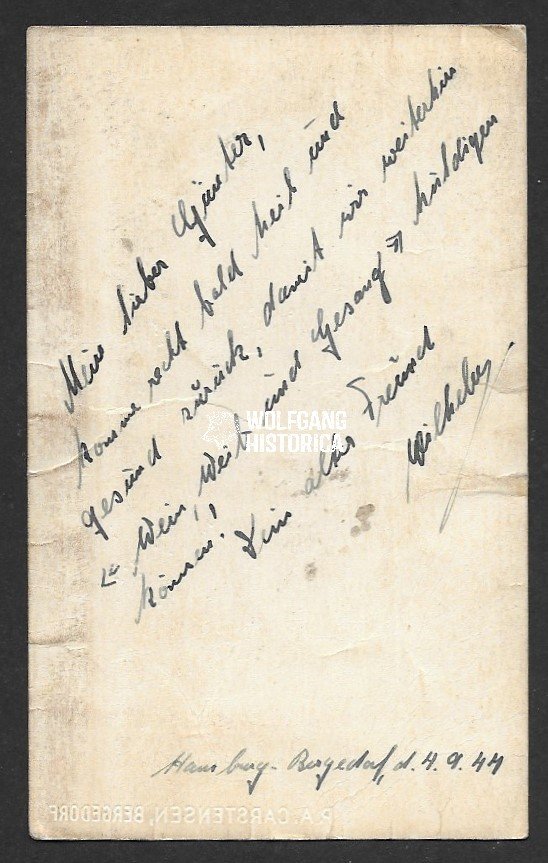 Mein lieber Günter,
komme recht bald heil und
gesund zurück, damit wir weiterhin
„Wein, Weib und Gesang" huldigen
können.
Dein alter Freund
Wilhelm
Hamburg-Bergedorf, d. 4.9.44
P.A. CARSTENSEN, BERGEDORF
WOLFGANG
HISTORICA